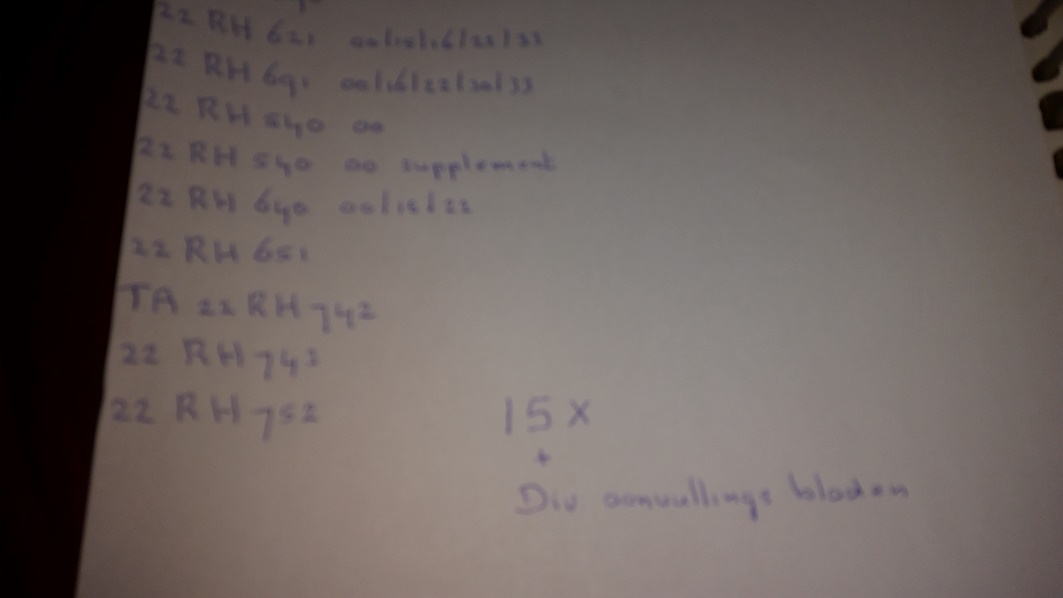 22 RH 621 00/15/16/22/33
22 RH 691 00/16/22/30/33
22 RH 540 00
22 RH 540 00 supplement
22 RH 640 00/15/22
22 RH 651
TA 22 RH 742
22 RH 743
22 RH 752
15 x
+
Div aanvullings bladen